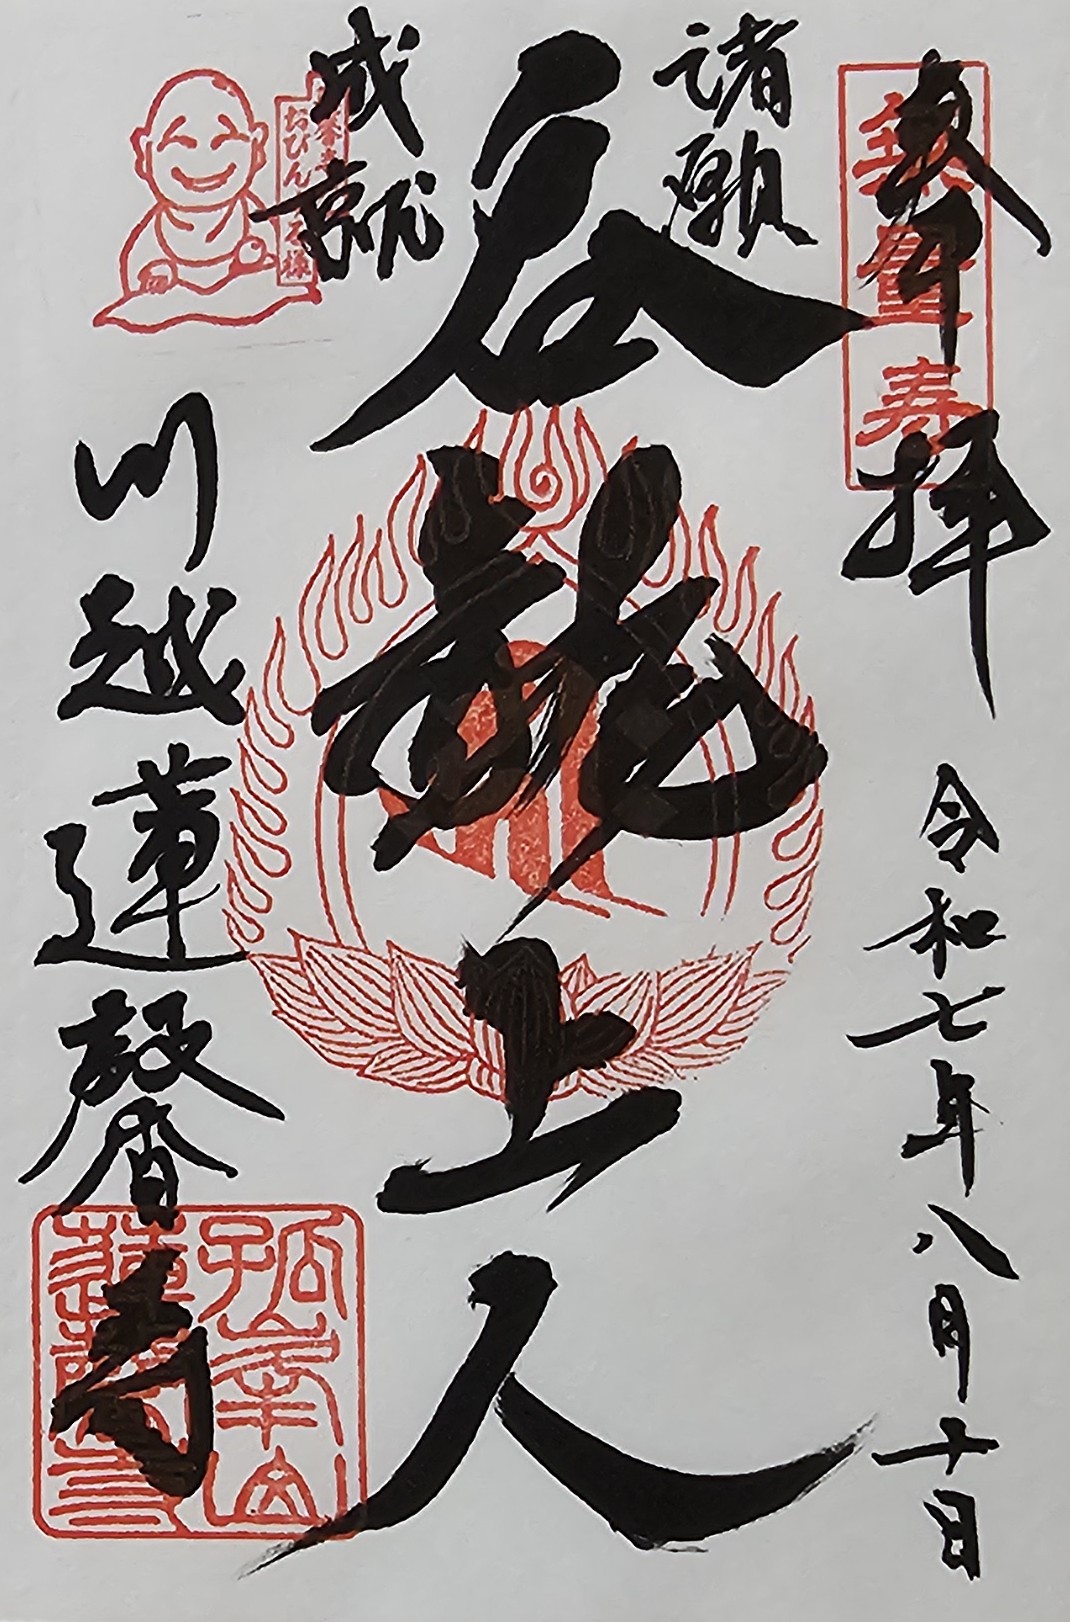 奉拝
令和七年八月十日
無量寿
諸願
成就
呑龍上人
川越蓮馨寺
おびんずる様
孤峯山
蓮馨寺